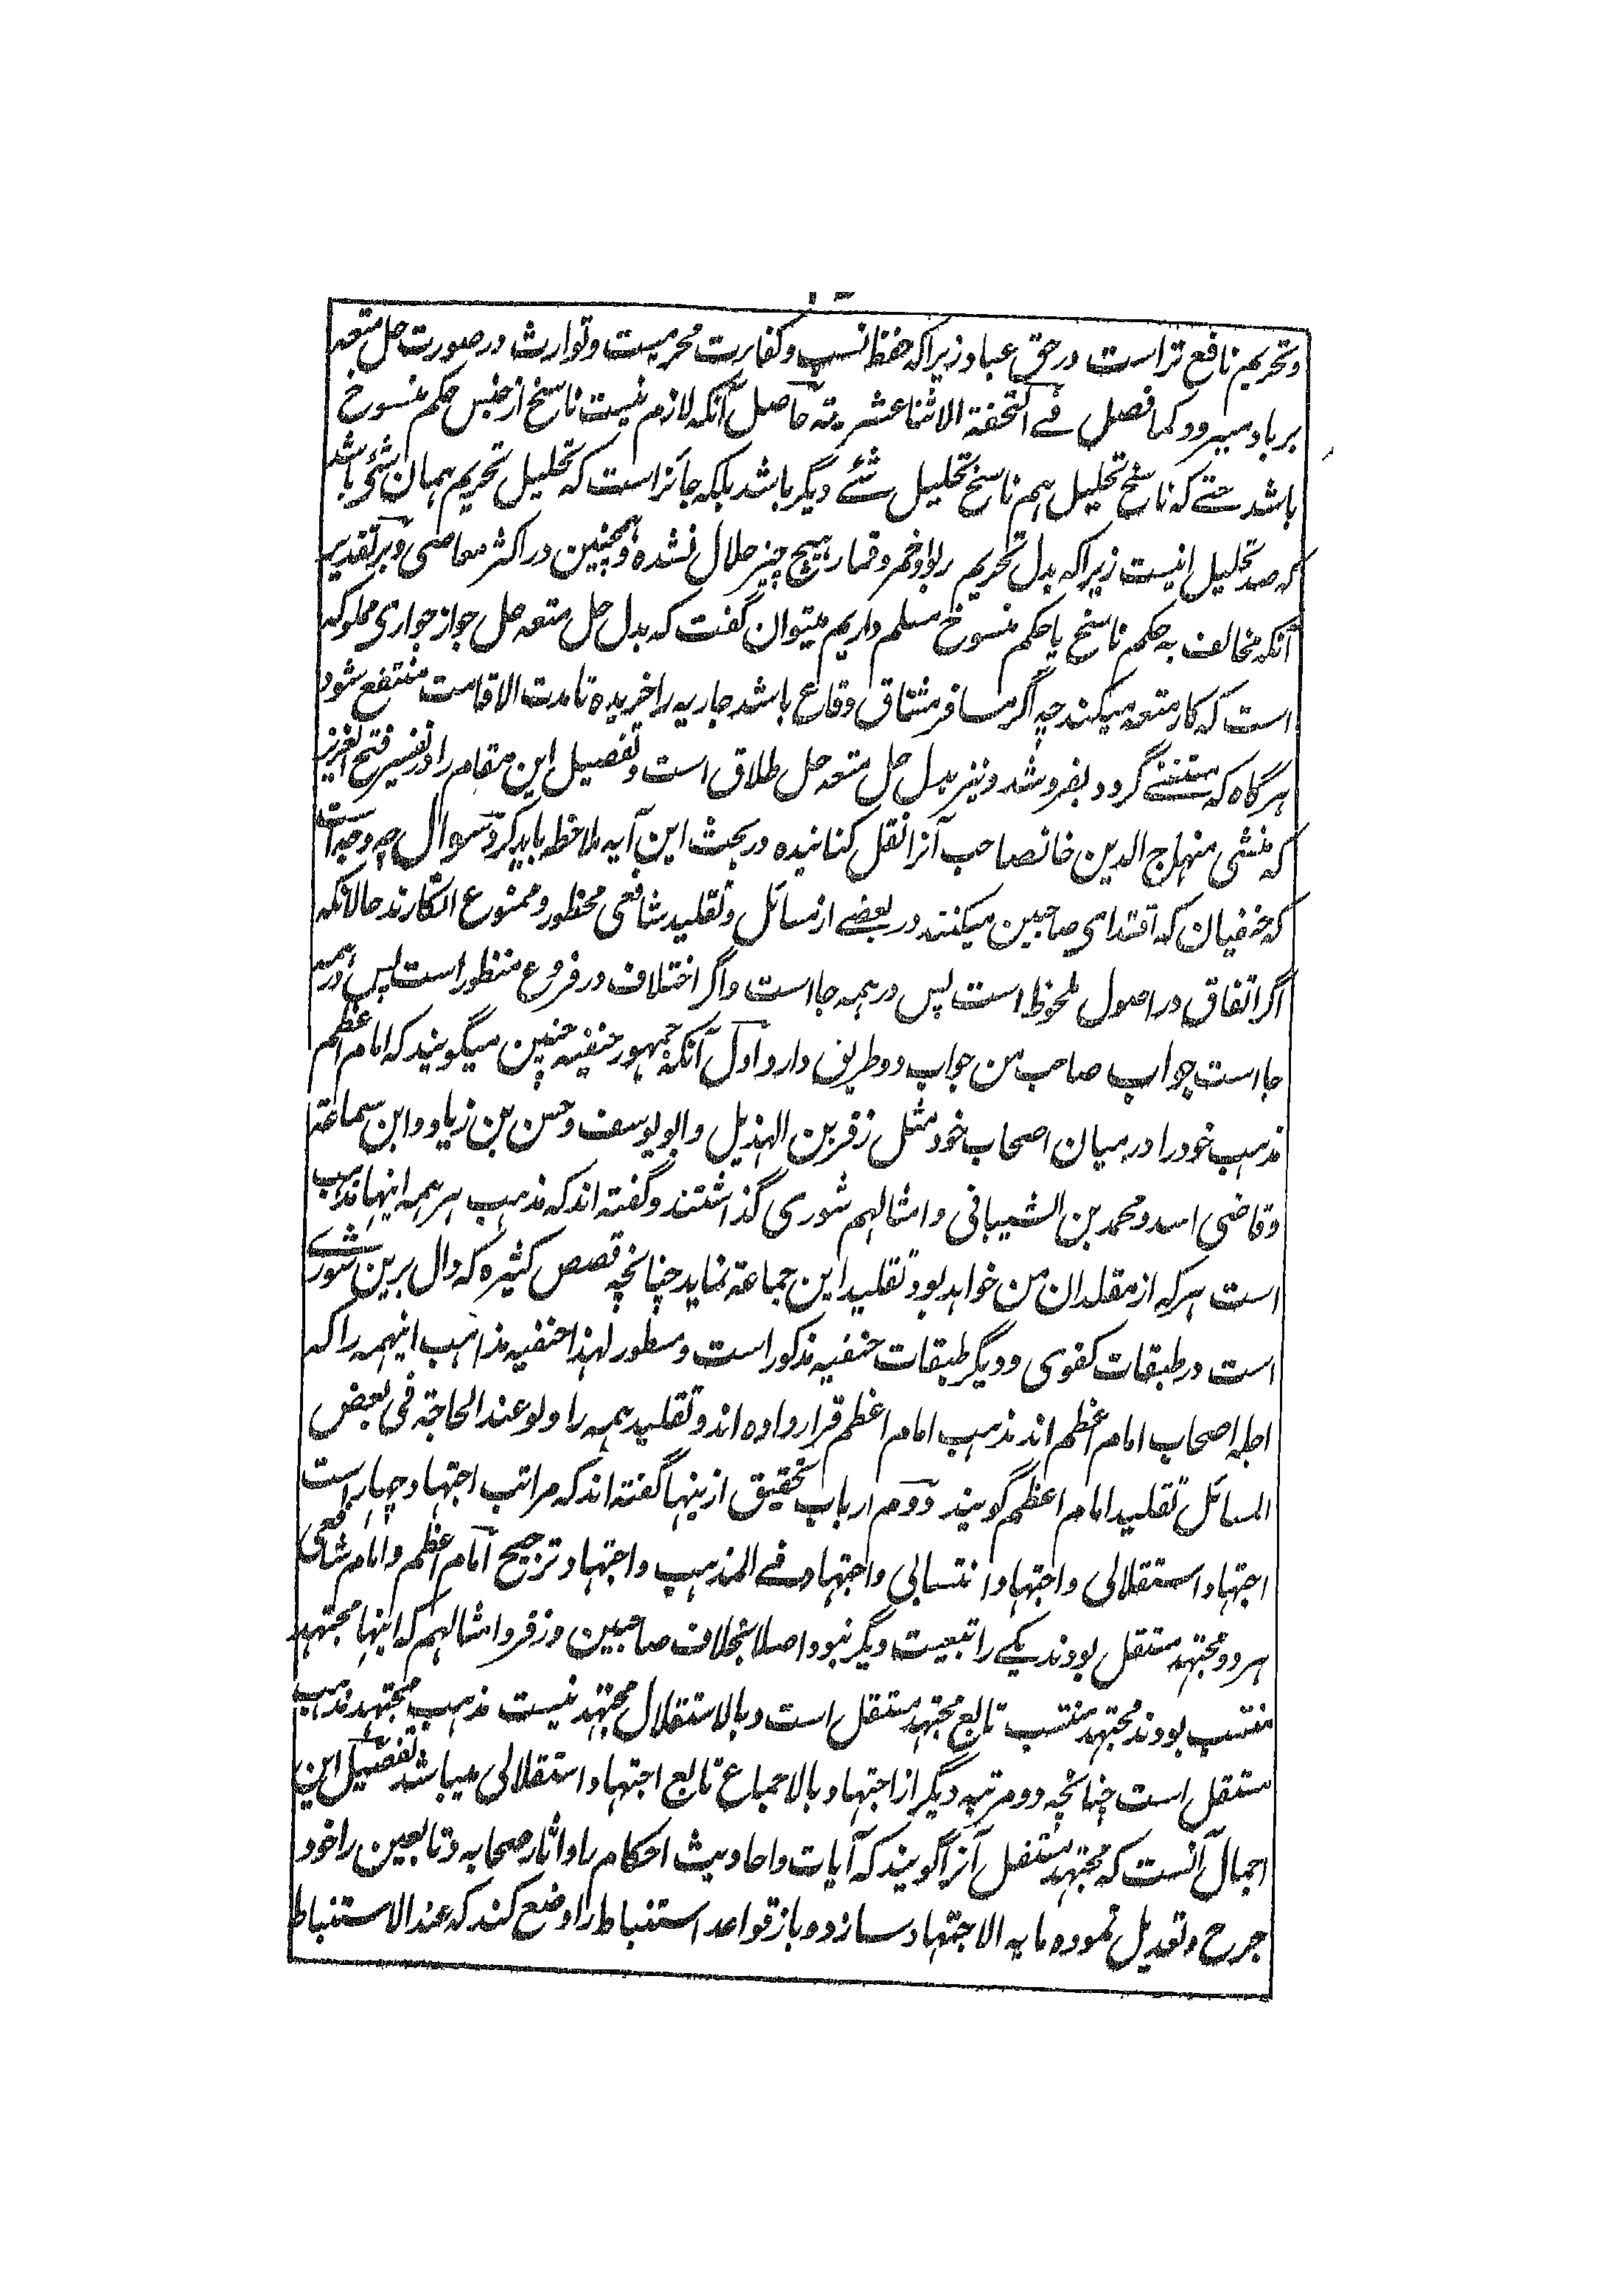 وتحریم نافع تر است در حق عباد زیراکه حفظ نسب و کفایرت محرمیت و توارث در صورت حل متعه
برباد میرود کما فصل فے التحفة الاثنا عشریته حاصل آنکه لازم نیست ناسخ از جنس حکم منسوخ
باشد حتے که ناسخ تحلیل هم ناسخ تحلیل شئے دیگر باشد بلکه جائز است که تحلیل تحریم همان شئی باشد
که ضد تحلیل انیست زیراکه بدل تحریم ربوا و خمر و قمار هیچ چیز حلال نشده و همچنین در اکثر معاصی و بر تقدیر
آنکه مخالف به حکم ناسخ یا حکم منسوخ مسلم داریم میتوان گفت که بدل حل متعه حل جواز جواری مملوکه
است که کار متعه میکند چه اگر مسافر مشتاق وقاع باشد جاریه را خریده تا مدت الاقامت منتفع شود
هرگاه که مستغنے گردد بفروشد و نیز بدل حل متعه حل طلاق است و تفصیل این مقام را در تفسیر فتح العزیز
که منشی منهاج الدین خانصاحب آنرا نقل کنانیده در بحث این آیه ملاحظه باید کرد سوال چه وجه است
که حنفیان که اقتدای صاحبین میکنند در بعضے از مسائل و تقلید شافعی محظور و ممنوع انکارند حالانکه
اگر اتفاق در اصول ملحوظ است پس در همه جا است و اگر اختلاف در فروع منظور است پس در همه
جا است جواب صاحب من جواب دو طریق دارد اول آنکه جمهور حنفیه چنین میگویند که امام اعظم
مذهب خود را در میان اصحاب خود مثل زفر بن الهذیل و ابو یوسف و حسن بن زیاد و ابن سماعة
و قاضی اسد و محمد بن الشیبانی و امثالهم شوری گذاشتند و گفته اند که مذهب هر همه اینها مذهب
است هرکه از مقلدان من خواهد بود تقلید این جماعة نماید چنانچه قصص کثیره که دال برین شورے
است در طبقات کفوی و دیگر طبقات حنفیه مذکور است و مسطور لهذا حنفیه مذاهب اینهمه را که
اجله اصحاب امام اعظم اند مذهب امام اعظم قرار داده اند و تقلید همه را ولو عند الحاجة فی بعض
المسائل تقلید امام اعظم گویند دووم ارباب تحقیق از ینها گفته اند که مراتب اجتهاد چهار است
اجتهاد استقلالی و اجتهاد انتسابی و اجتهاد فے المذهب و اجتهاد ترجیح امام اعظم و امام شافعی
هر دو مجتهد مستقل بودند یکے را تبعیت دیگر نبود اصلا بخلاف صاحبین و زفر و امثالهم که اینها مجتهد
منتسب بودند مجتهد منتسب تابع مجتهد مستقل است و بالاستقلال مجتهد نیست مذهب مجتهد مذهب
مستقل است چنانچه دو مرتبه دیگر از اجتهاد بالاجماع تابع اجتهاد استقلالی میباشد تفصیل این
اجمال آنست که مجتهد مستقل آنرا گویند که آیات و احادیث احکام را و اثار صحابه و تابعین را خود
جرح و تعدیل نموده مایه الاجتهاد سازد و باز قواعد استنباط را وضع کند که عند الاستنباط